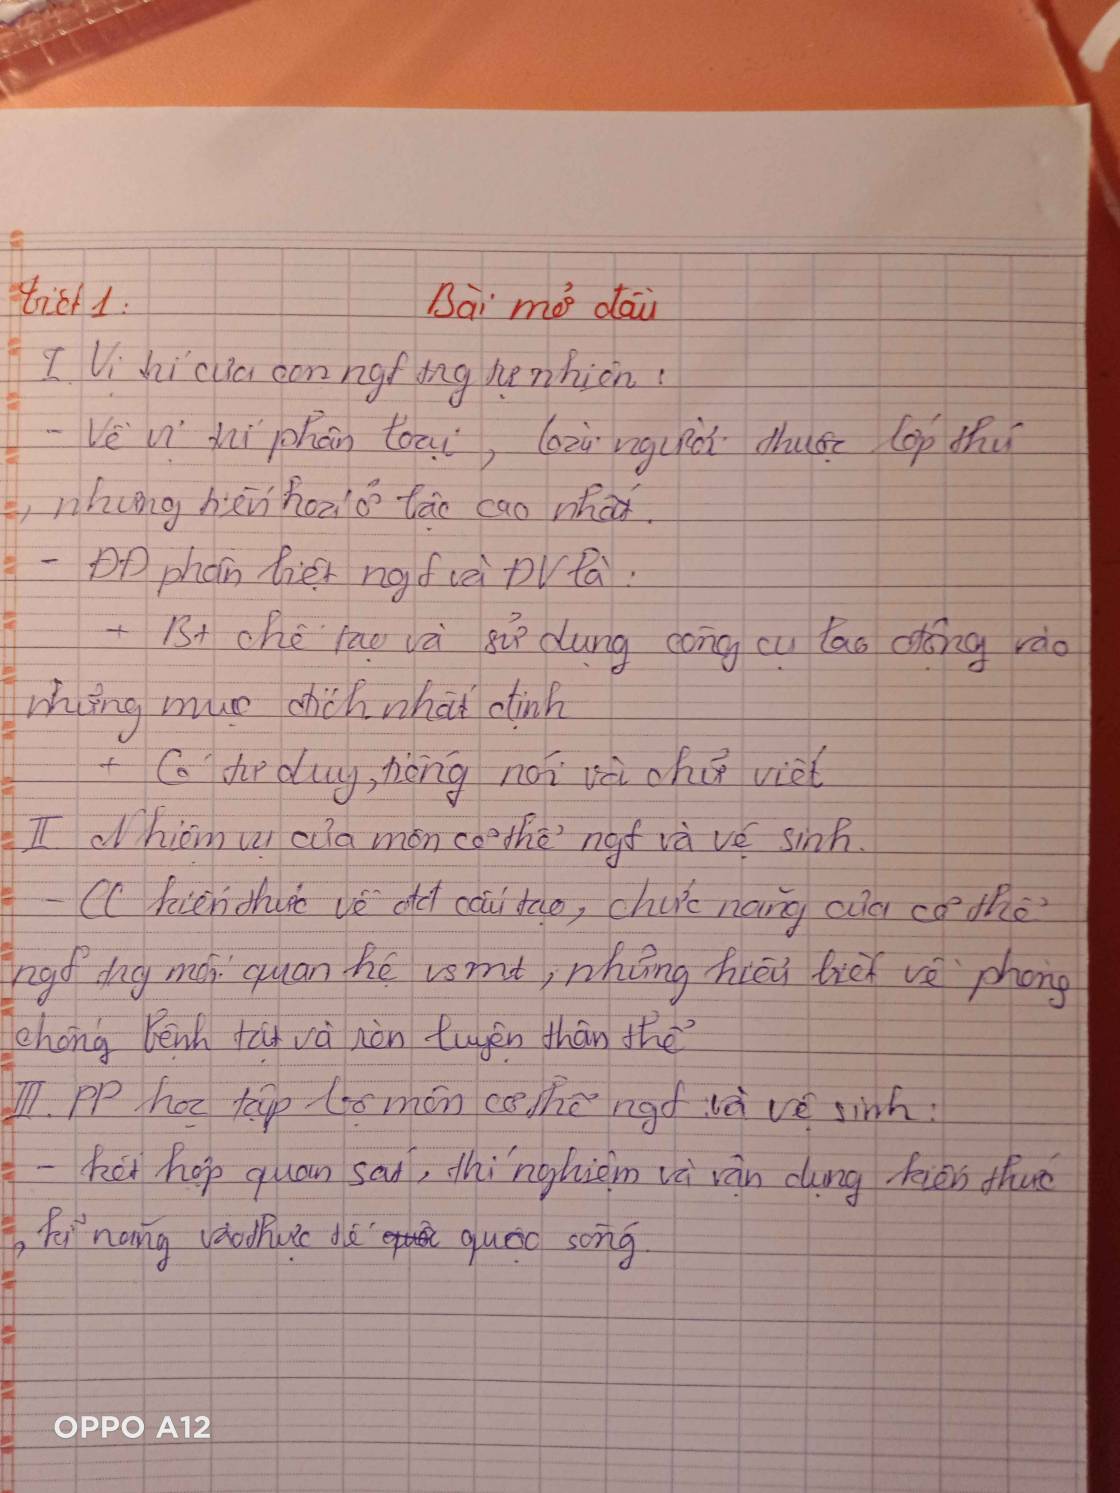 tiết 1: Bài mở đầu
I. Vị trí của con ngf trg tự nhiên:
- Về vị trí phân loại, loài người thuộc lớp thú
, nhưng tiến hoá ở bậc cao nhất.
- ĐĐ phân biệt ngf và ĐV là:
+ Bt chế tạo và sử dụng công cụ lao động vào
những mục đích nhất định
+ Có tư duy, tiếng nói và chữ viết
II Nhiệm vụ của môn cơ thể ngf và vệ sinh.
- CC kiến thức về đđ cấu tạo, chức năng của cơ thể
ngf trg mối quan hệ vs mt, những hiểu biết về phòng
chống bệnh tật và rèn luyện thân thể
III. PP học tập bộ môn cơ thể ngf và vệ sinh:
- kết hợp quan sát, thí nghiệm và vận dụng kiến thức
, kĩ năng vào thực tế quộc sống.
OPPO A12